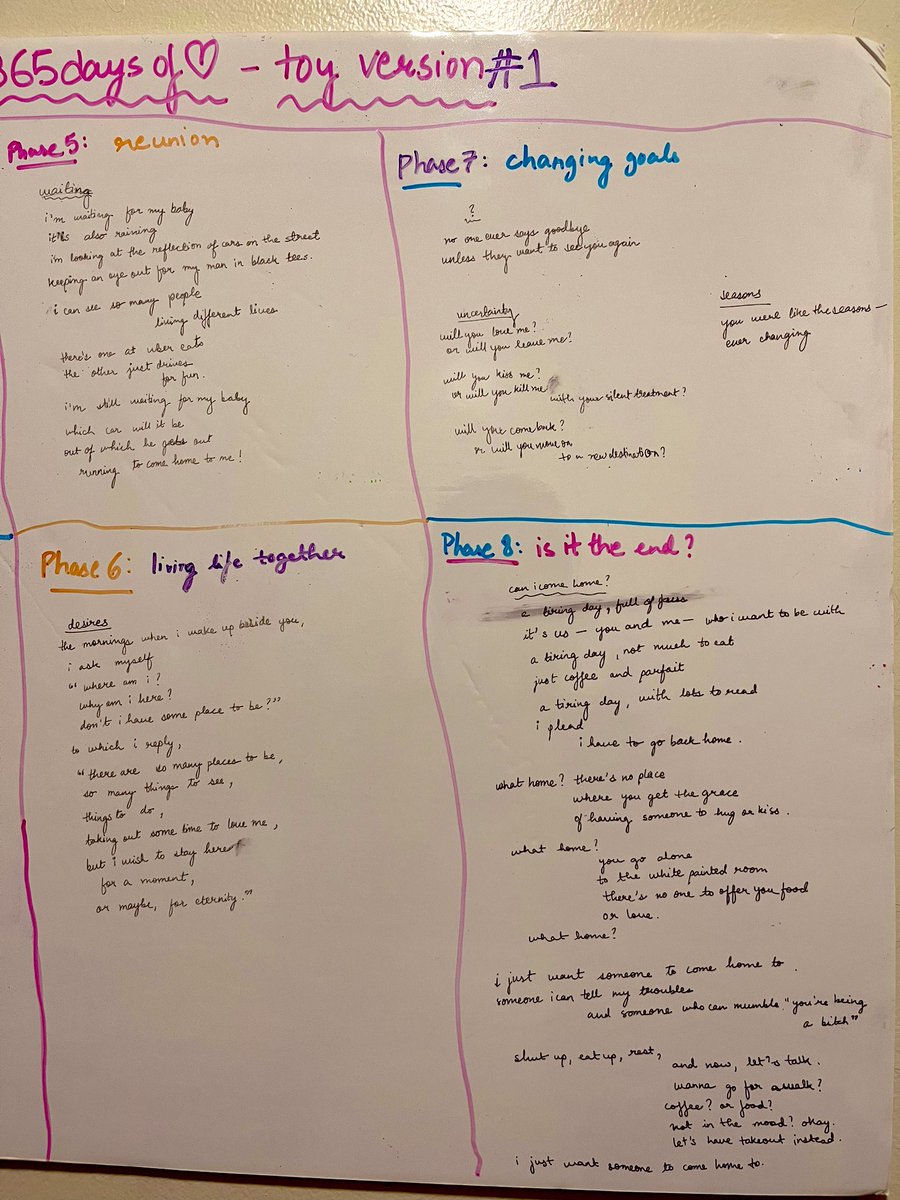 365days of ♡ – toy version #1
Phase 5: reunion
waiting
i'm waiting for my baby
it's also raining
im looking at the reflection of cars on the street
keeping an eye out for my man in black tees.
i can see so many people
living different lives
there's one at uber eats
the other just drives
for fun.
i'm still waiting for my baby
which car will it be
out of which he gets out
running to come home to me!
Phase 6: living life together
desires
the mornings when i wake up beside you,
i ask myself
"where am i?
why am i here?
don't i have some place to be?"
to which i reply,
"there are so many places to be,
so many things to see,
things to do,
taking out some time to love me,
but i wish to stay here
for a moment,
or maybe, for eternity."
Phase 7: changing goals
?
no one ever says goodbye
unless they want to see you again
uncertainty
will you love me?
or will you leave me?
will you kiss me?
or will you kill me
with your silent treatment?
will you come back?
or will you move on
to a new destination?
seasons
you were like the seasons –
ever changing
Phase 8: is it the end?
can i come home?
a tiring day, full of
it's us – you and me – who i want to be with
a tiring day, not much to eat
just coffee and parfait
a tiring day, with lots to read
i plead
i have to go back home.
what home? there's no place
where you get the grace
of having someone to hug or kiss.
what home?
you go alone
to the white painted room
there's no one to offer you food
or love.
what home?
i just want someone to come home to.
someone i can tell my troubles
and someone who can mumble "you're being
a bitch"
shut up, eat up, rest,
and now, let's talk.
wanna go for a walk?
coffee? or food?
not in the mood? okay.
let's have takeout instead.
i just want someone to come home to.